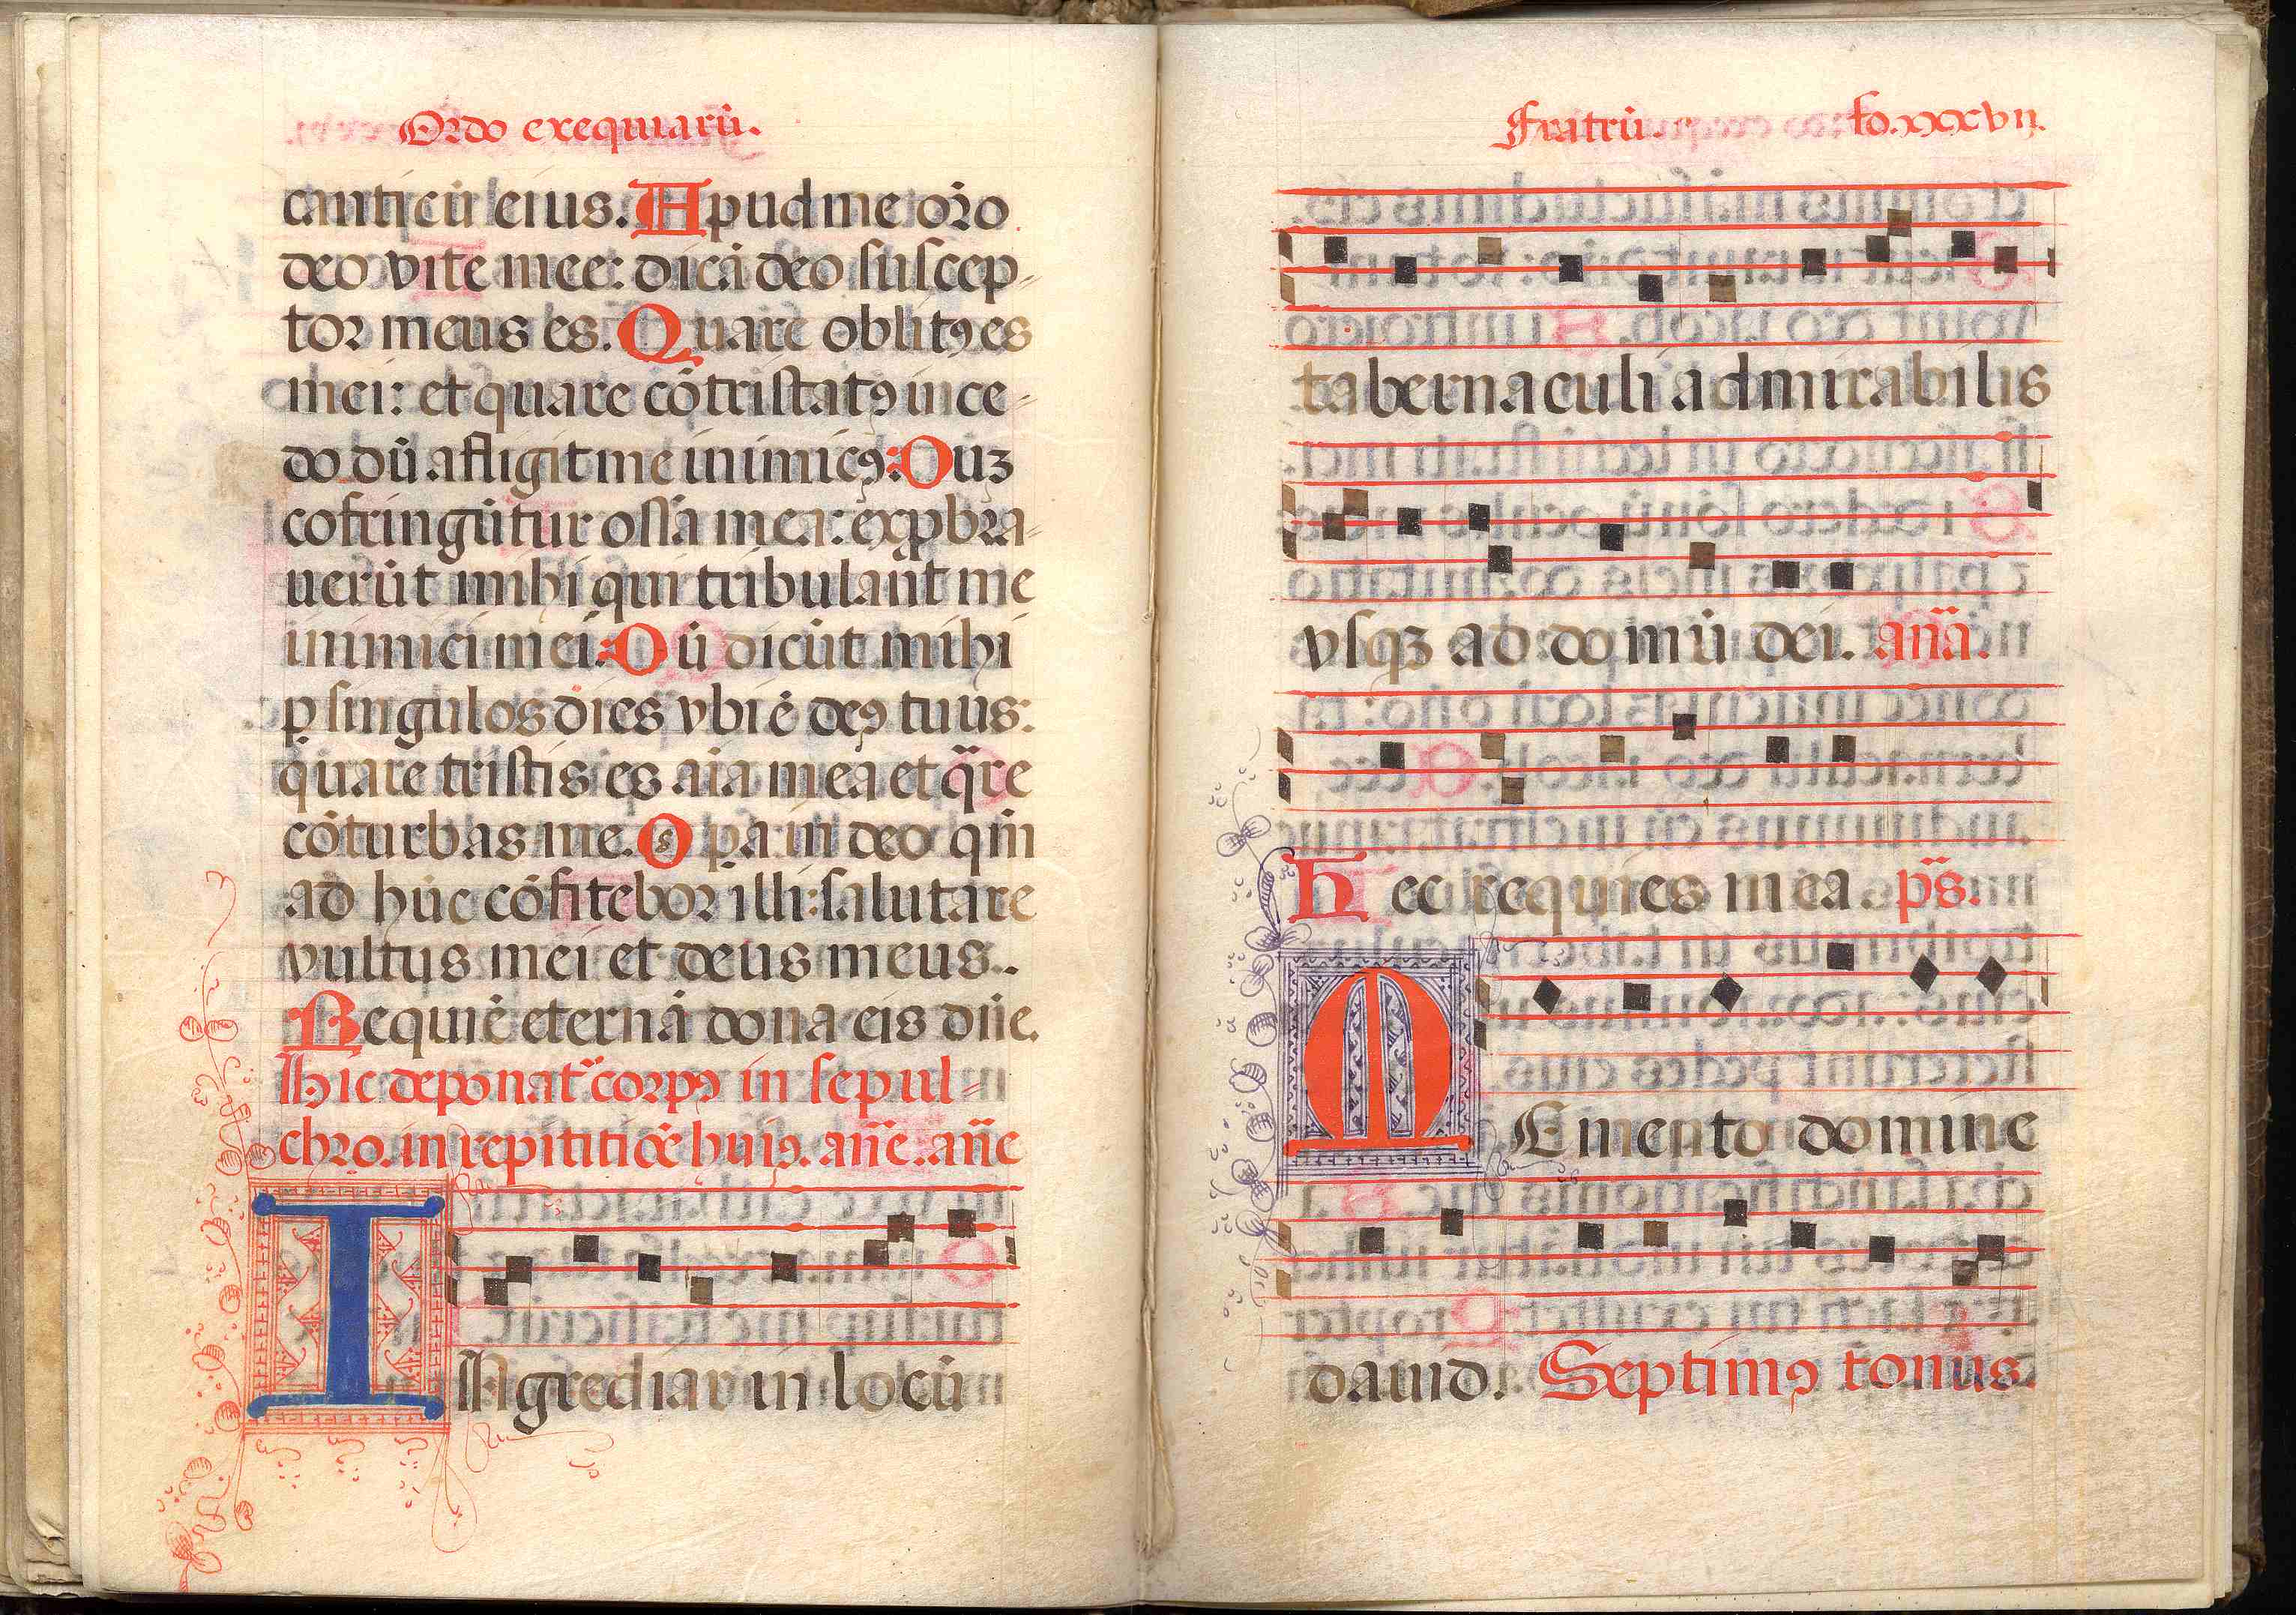 Ordo exequiarū.
canticū eius. Apud me orō
deo vite mee: dicā deo suscep-
tor meus es. Quare oblitꝰ es
mei: et quare cōtristatꝰ ince-
do dū afligit me inimicꝰ: Duꝫ
cofringūtur ossa mea: exꝓbra-
uerūt mihi qui tribulant me
inimici mei: Dū dicūt mihi
ꝑ singulos dies vbi ē deꝰ tuus:
quare tristis es aīa mea et qre
cōturbas me. Spa in deo qm̄
ad huc cōfitebor illi: salutare
vultus mei et deus meus.
Requiē eternā dona eis dn̄e.
Hic deponat᷑ corpꝰ in sepul-
chro. in repititiōe huiꝰ. an̄e. an̄e
INgrediar in locū
Fratrū. fo. xxxvii.
tabernaculi admirabilis
vsqꝫ ad domū dei. an̄a.
Hec requies mea. ps̄.
MEmento domine
dauid. Septimꝰ tonus.